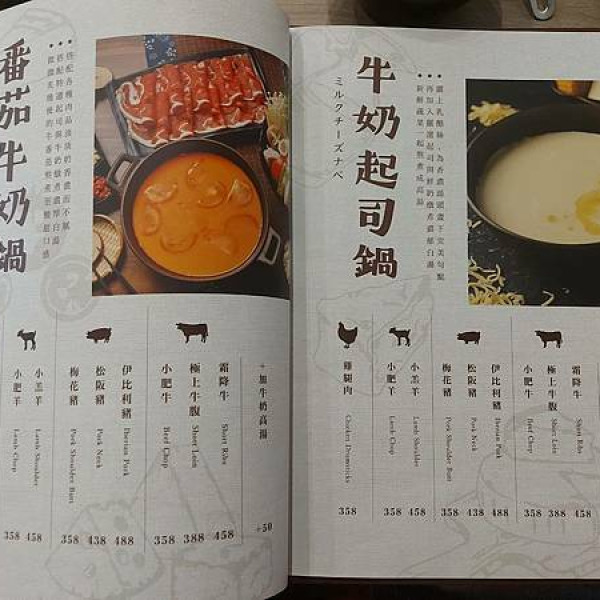 番茄牛奶鍋
+加牛奶高湯 +50
霜降牛 Short Ribs 458
極上牛腹 Short Loin 388
小肥牛 Beef Chop 358
伊比利豬 Iberian Pork 488
松阪豬 Pork Neck 438
梅花豬 Pork Shoulder Butt 358
小羔羊 Lamb Shoulder 458
小肥羊 Lamb Chop 358
牛奶起司鍋
ミルクチーズナベ
霜降牛 Short Ribs 458
極上牛腹 Short Loin 388
小肥牛 Beef Chop 358
伊比利豬 Iberian Pork 488
松阪豬 Pork Neck 438
梅花豬 Pork Shoulder Butt 358
小羔羊 Lamb Shoulder 458
小肥羊 Lamb Chop 358
雞腿肉 Chicken Drumsticks 358